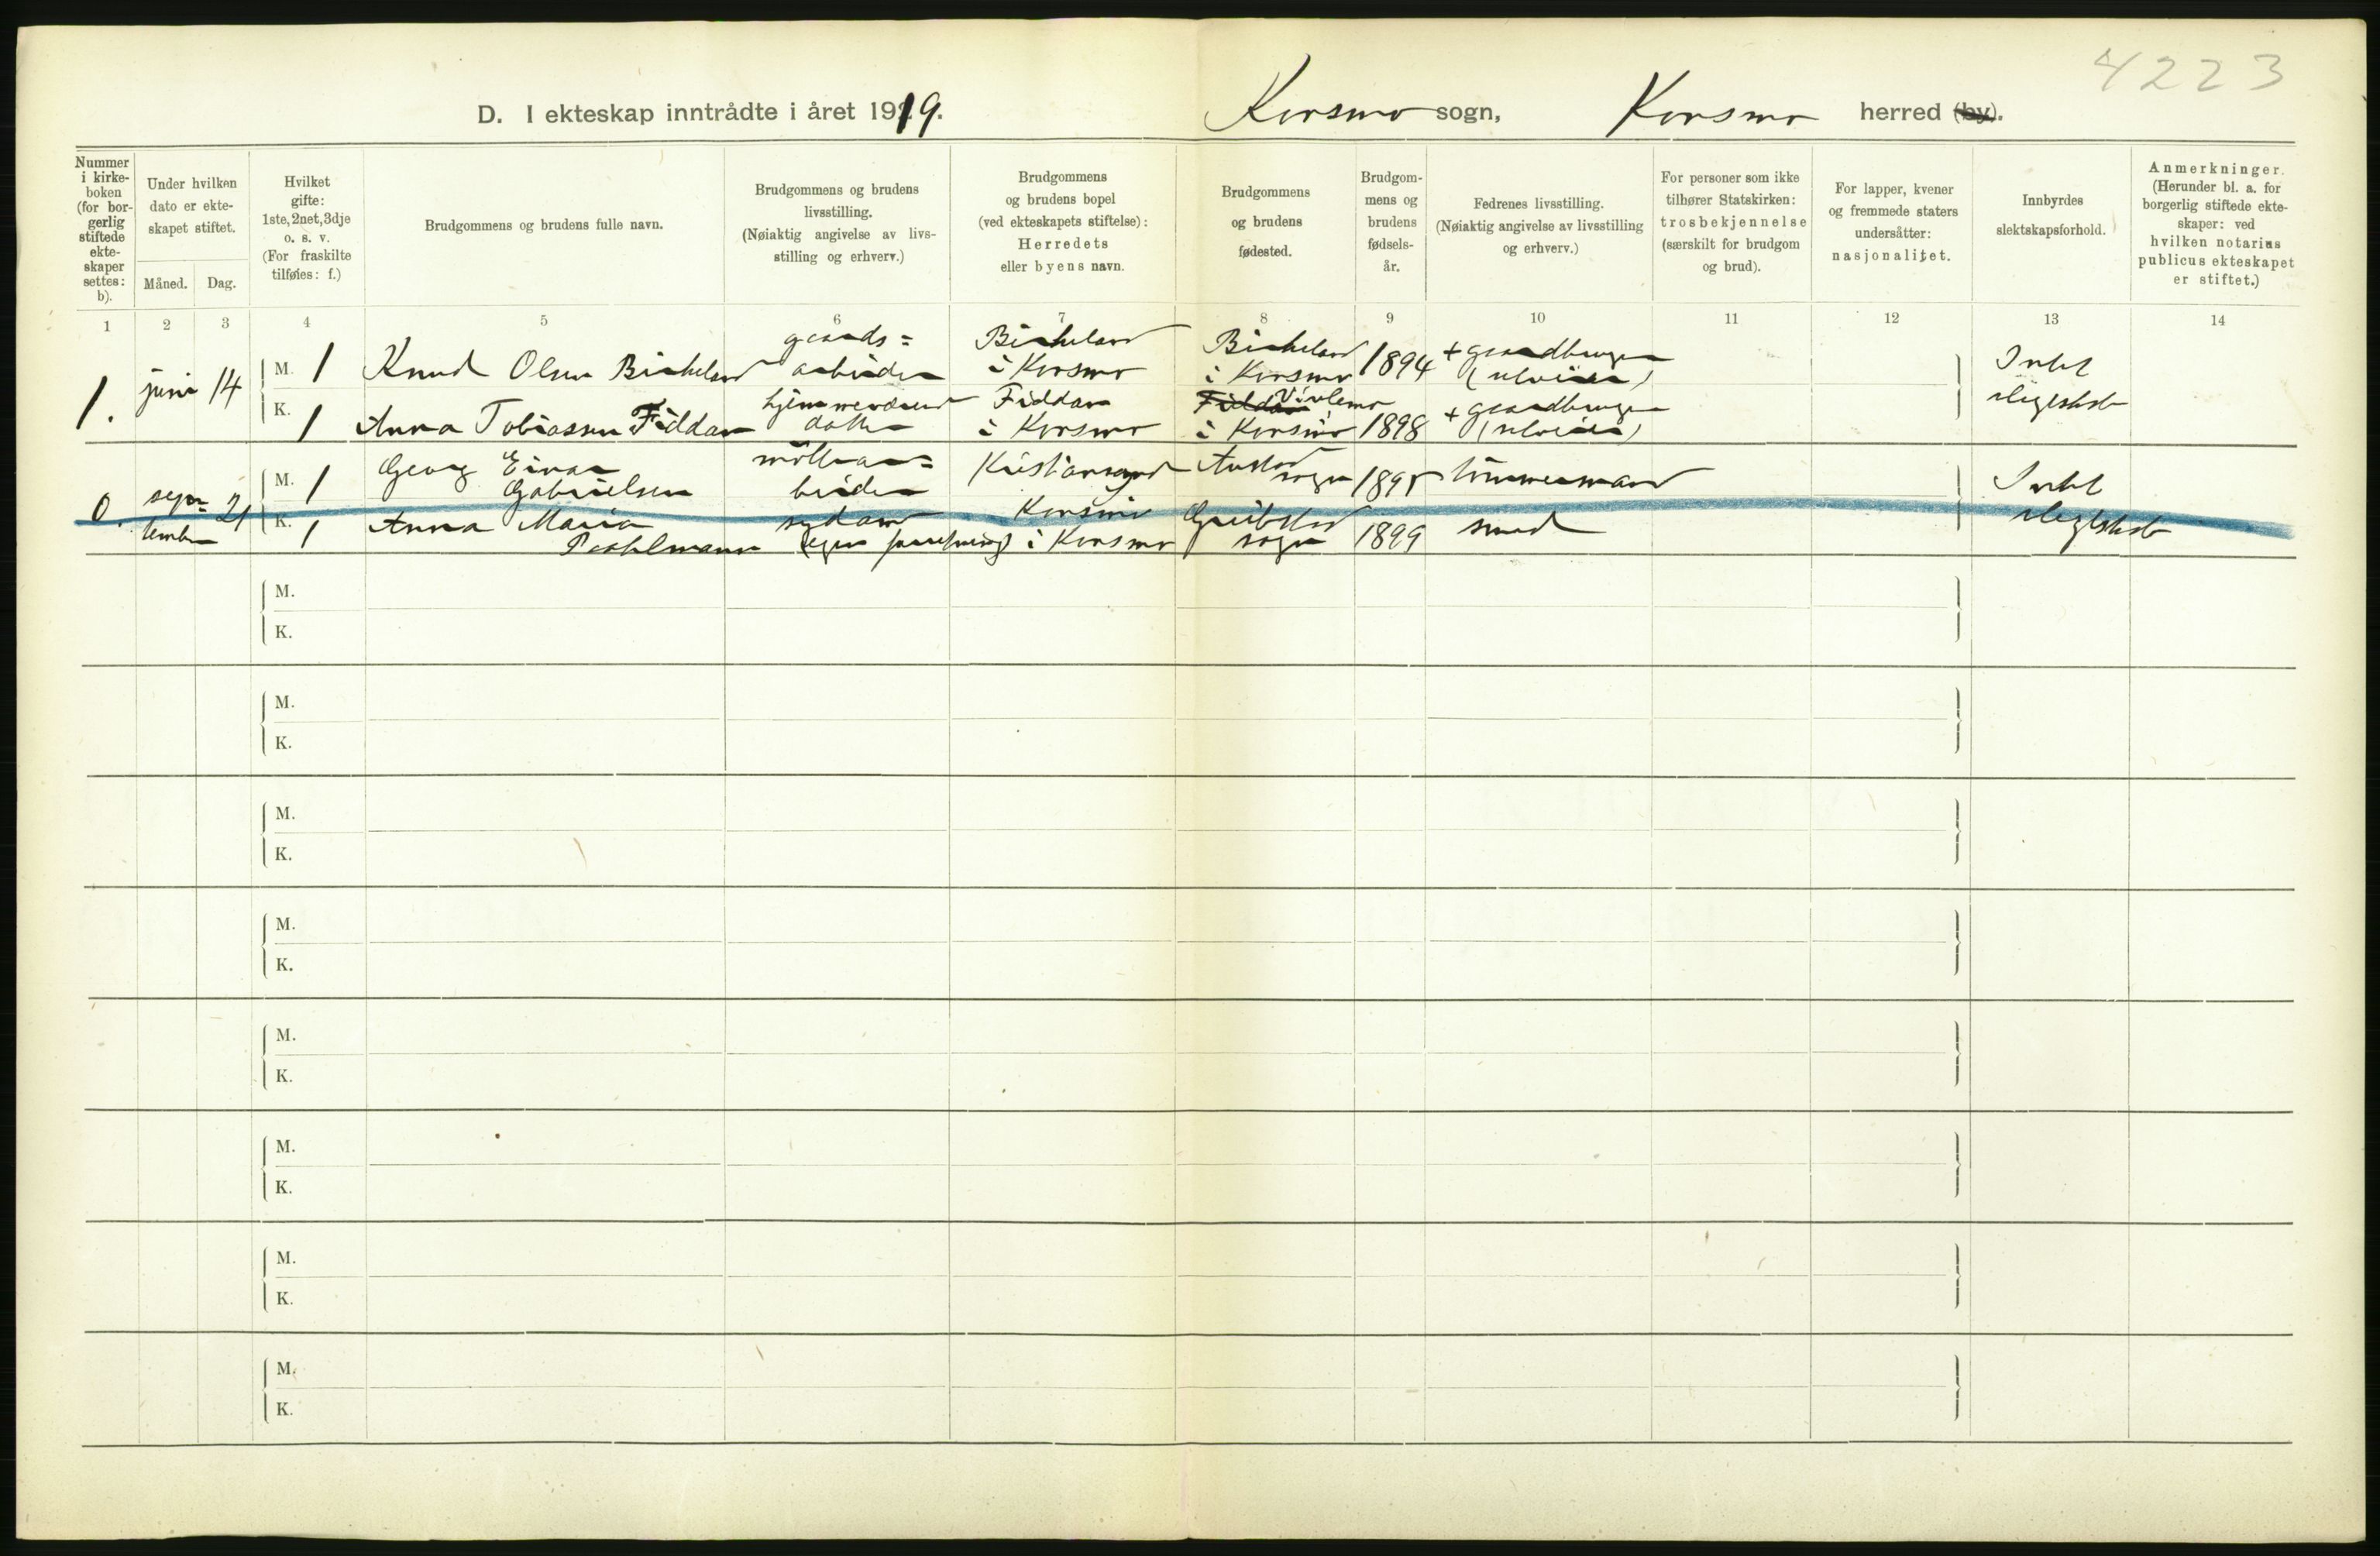 4223
D. I ekteskap inntrådte i året 1919. Konsmo sogn, Konsmo herred (by).
Nummer
i kirke-
boken
(for bor-
gerlig
stiftede
ekte-
skaper
settes:
b).
Under hvilken
dato er ekte-
skapet stiftet.
Måned. Dag.
Hvilket
gifte:
1ste, 2net, 3dje
o. s. v.
(For fraskilte
tilføies: f.)
Brudgommens og brudens fulle navn.
Brudgommens og brudens
livsstilling.
(Nøiaktig angivelse av livs-
stilling og erhverv.)
Brudgommens
og brudens bopel
(ved ekteskapets stiftelse):
Herredets
eller byens navn.
Brudgommens
og brudens
fødested.
Brudgom-
mens og
brudens
fødsels-
år.
Fedrenes livsstilling.
(Nøiaktig angivelse av livsstilling
og erhverv.)
For personer som ikke
tilhører Statskirken:
trosbekjennelse
(særskilt for brudgom
og brud).
For lapper, kvener
og fremmede staters
undersåtter:
nasjonalitet.
Innbyrdes
slektskapsforhold.
Anmerkninger.
(Herunder bl. a. for
borgerlig stiftede ekte-
skaper: ved
hvilken notarius
publicus ekteskapet
er stiftet.)
1 2 3 4 5 6 7 8 9 10 11 12 13 14
1. juni 14
M. 1 Knud Olsen Birkeland
gaards=
arbeider
Birkeland
i Konsmo
Birkeland
i Konsmo
1894
+ gaardbruger
(selveier)
Intet
slegtskab
K. 1 Anna Tobiassen Fiddan
hjemmeværende
datter
Fiddan
i Konsmo
Fiddan
i Konsmo
1898
+ gaardbruger
(selveier)
0. septem-
ber 21
M. 1 Georg Einar
Gabrielsen
møllear=
beider
Kristiansand
sogn
1895
tømmermand
Intet
slegtskab
K. 1 Anna Maria
Paahlmann
sydame
(egen forretning)
Konsmo
i Konsmo
sogn
1899
smed
M.
K.
M.
K.
M.
K.
M.
K.
M.
K.
M.
K.
M.
K.
M.
K.